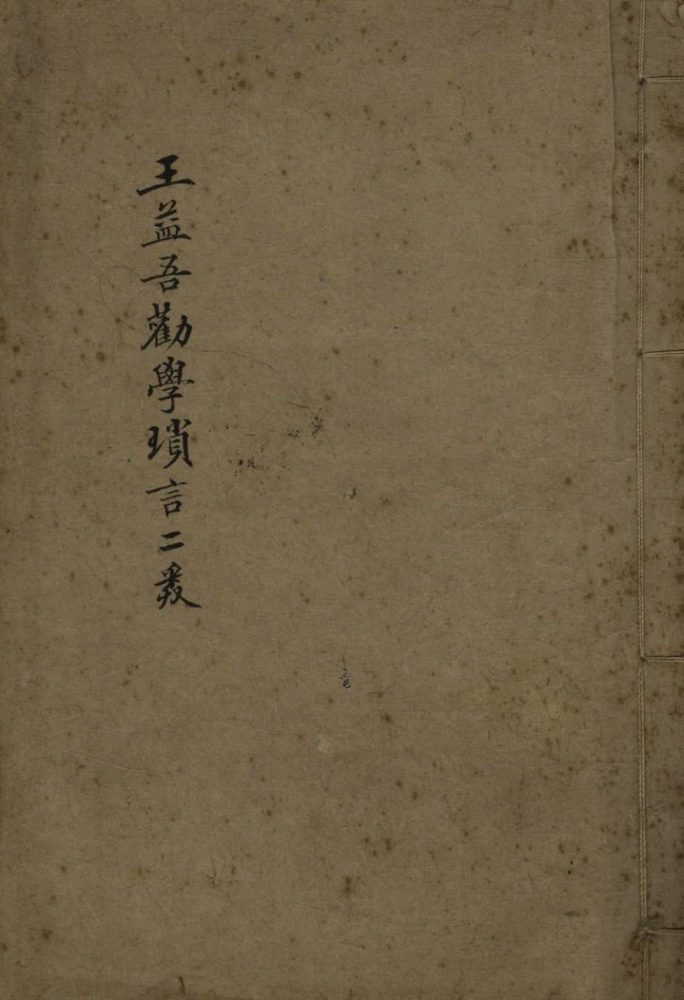 王益吾勸學瑣言二